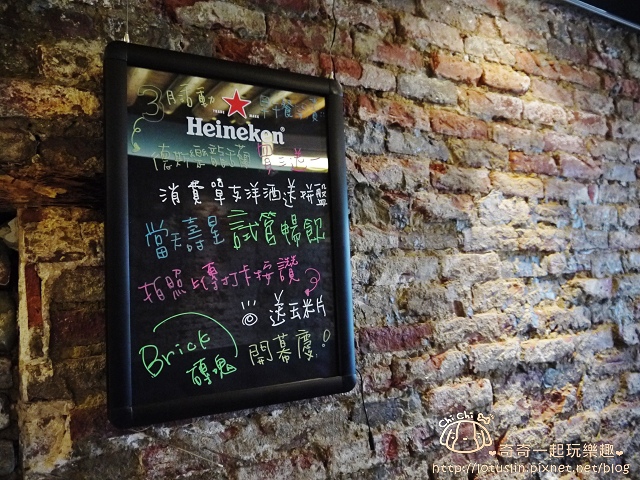 3月活動
Heineken
消費單支洋酒送拼盤
當天壽星試管暢飲
拍照上傳打卡按讚
送玉米片
Brick
磚塊
開幕慶!
Chi Chi
奇奇一起玩樂趣
http://lotuslin.pixnet.net/blog